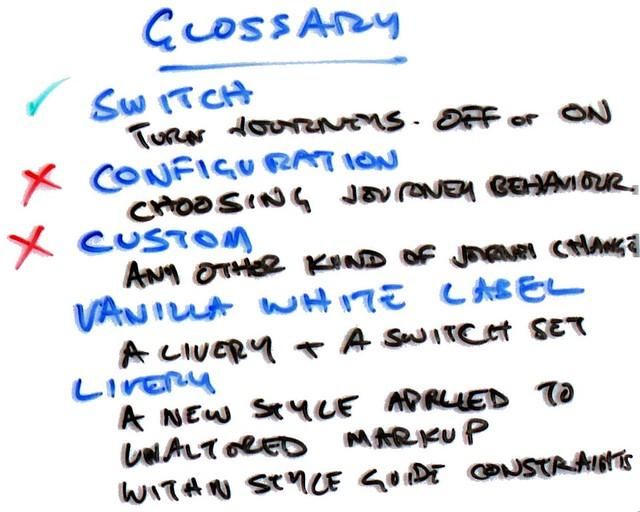 GLOSSARY
SWITCH
TURN JOURNEYS. OFF or ON
CONFIGURATION
CHOOSING JOURNEY BEHAVIOUR.
CUSTOM
ANY OTHER KIND OF JOURNEY CHANGE
VANILLA WHITE LABEL
A LIVERY + A SWITCH SET
LIVERY
A NEW STYLE APPLIED TO
UNALTERED MARKUP
WITHIN STYLE GUIDE CONSTRAINTS